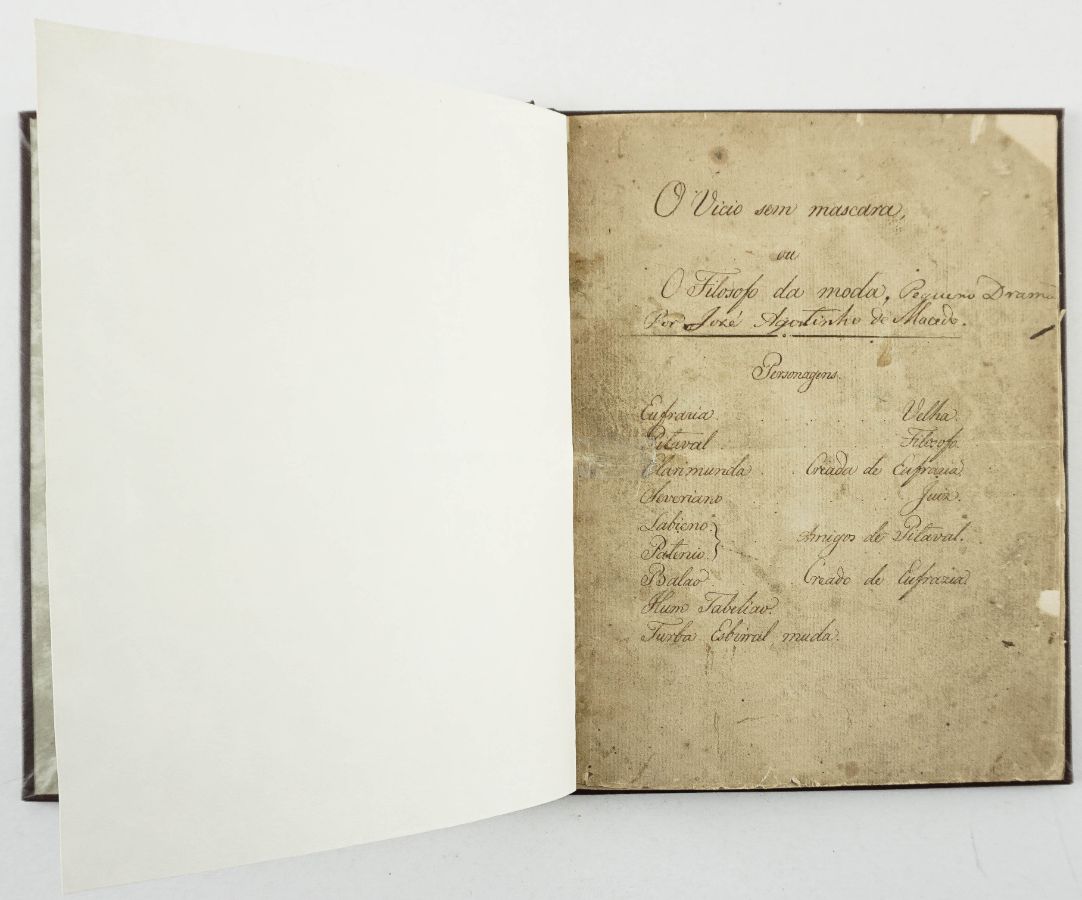 O Vicio sem mascara,
ou
O Filosofo da moda, Pequeno Drama
Por José Agostinho de Macedo.
Personagens.
Eufrazia. Velha.
Pitaval. Filozofo.
Clarimunda. Creada de Eufrazia.
Severiano Juiz.
Labieno.
Patenio. } Amigos de Pitaval.
Balao Creado de Eufrazia.
Hum Tabeliao.
Turba Esbirral muda.